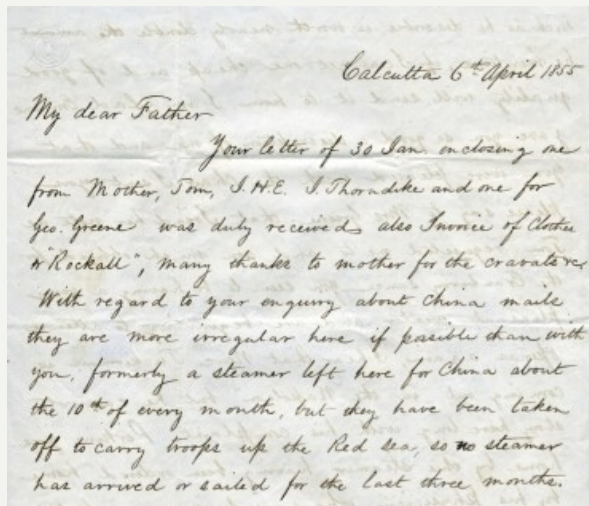 Calcutta 6th April 1855
My dear Father
Your letter of 30 Jan. enclosing one
from Mother, Tom, J.H.E. J. Thorndike and one for
Geo. Greene was duly received, also Invoice of Clothes
"Rockall", many thanks to mother for the cravats &c
With regard to your enquiry about China mails
they are more irregular here if possible than with
you, formerly a steamer left here for China about
the 10th of every month, but they have been taken
off to carry troops up the Red sea, so no steamer
has arrived or sailed for the last three months.